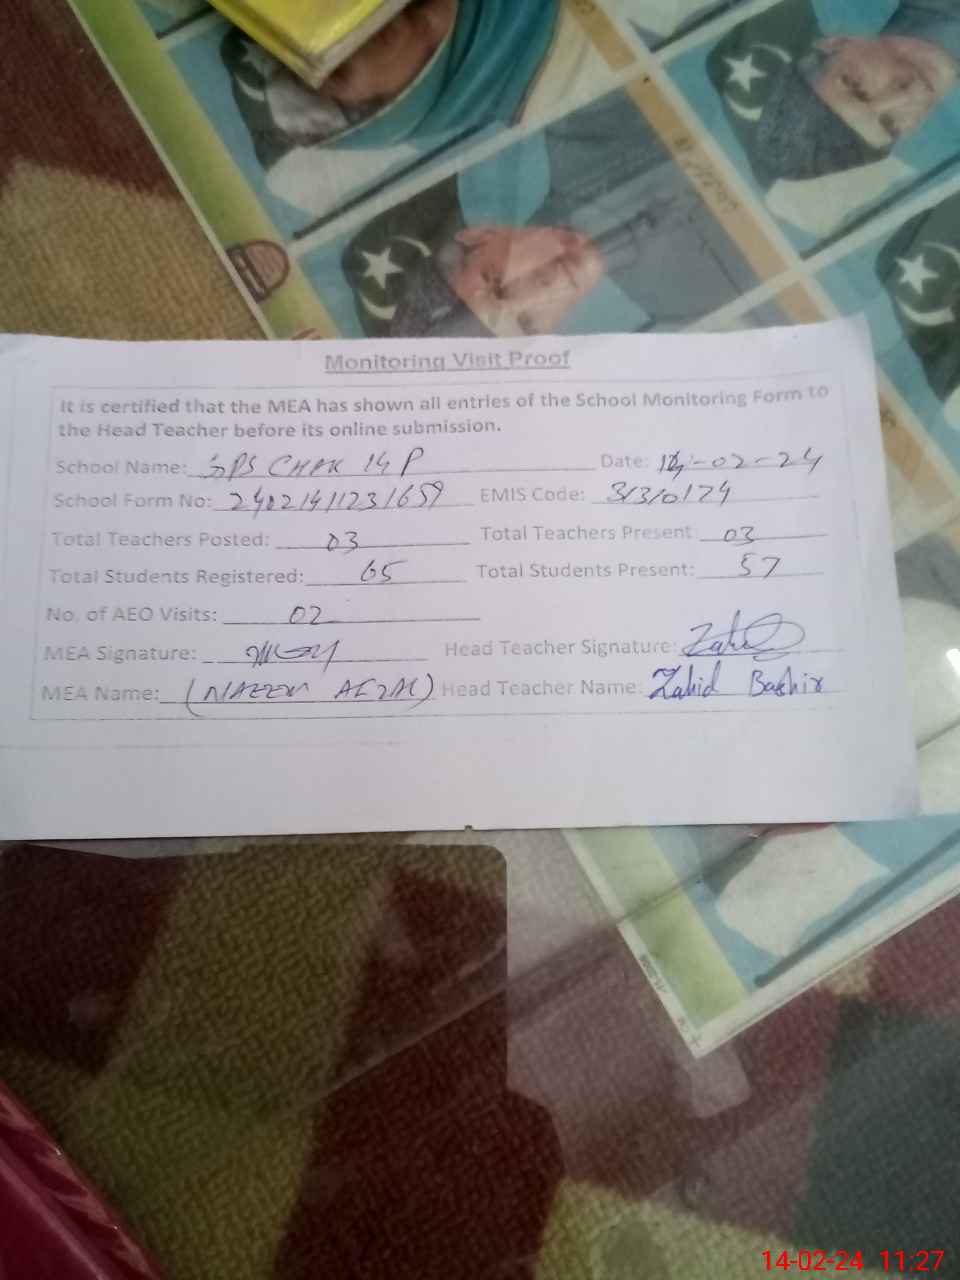 Monitoring Visit Proof
It is certified that the MEA has shown all entries of the School Monitoring Form to
the Head Teacher before its online submission.
School Name: GPS CHAK 14 P Date: 14-02-24
School Form No: 24021411231659 EMIS Code: 31330174
Total Teachers Posted: 03 Total Teachers Present: 03
Total Students Registered: 65 Total Students Present: 57
No. of AEO Visits: 02
MEA Signature: Head Teacher Signature: Zahid
MEA Name: (NAEEM AFZAL) Head Teacher Name: Zahid Bashir
14-02-24 11:27